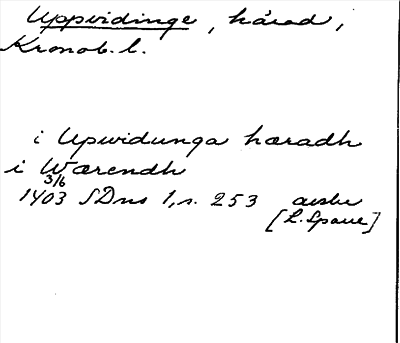 Uppvidinge, härad,
Kronob. l.
i Upwidunga hæradh
i Wærendh
3/6
1403 SDns 1, s. 253 avskr
[L. Spaue]